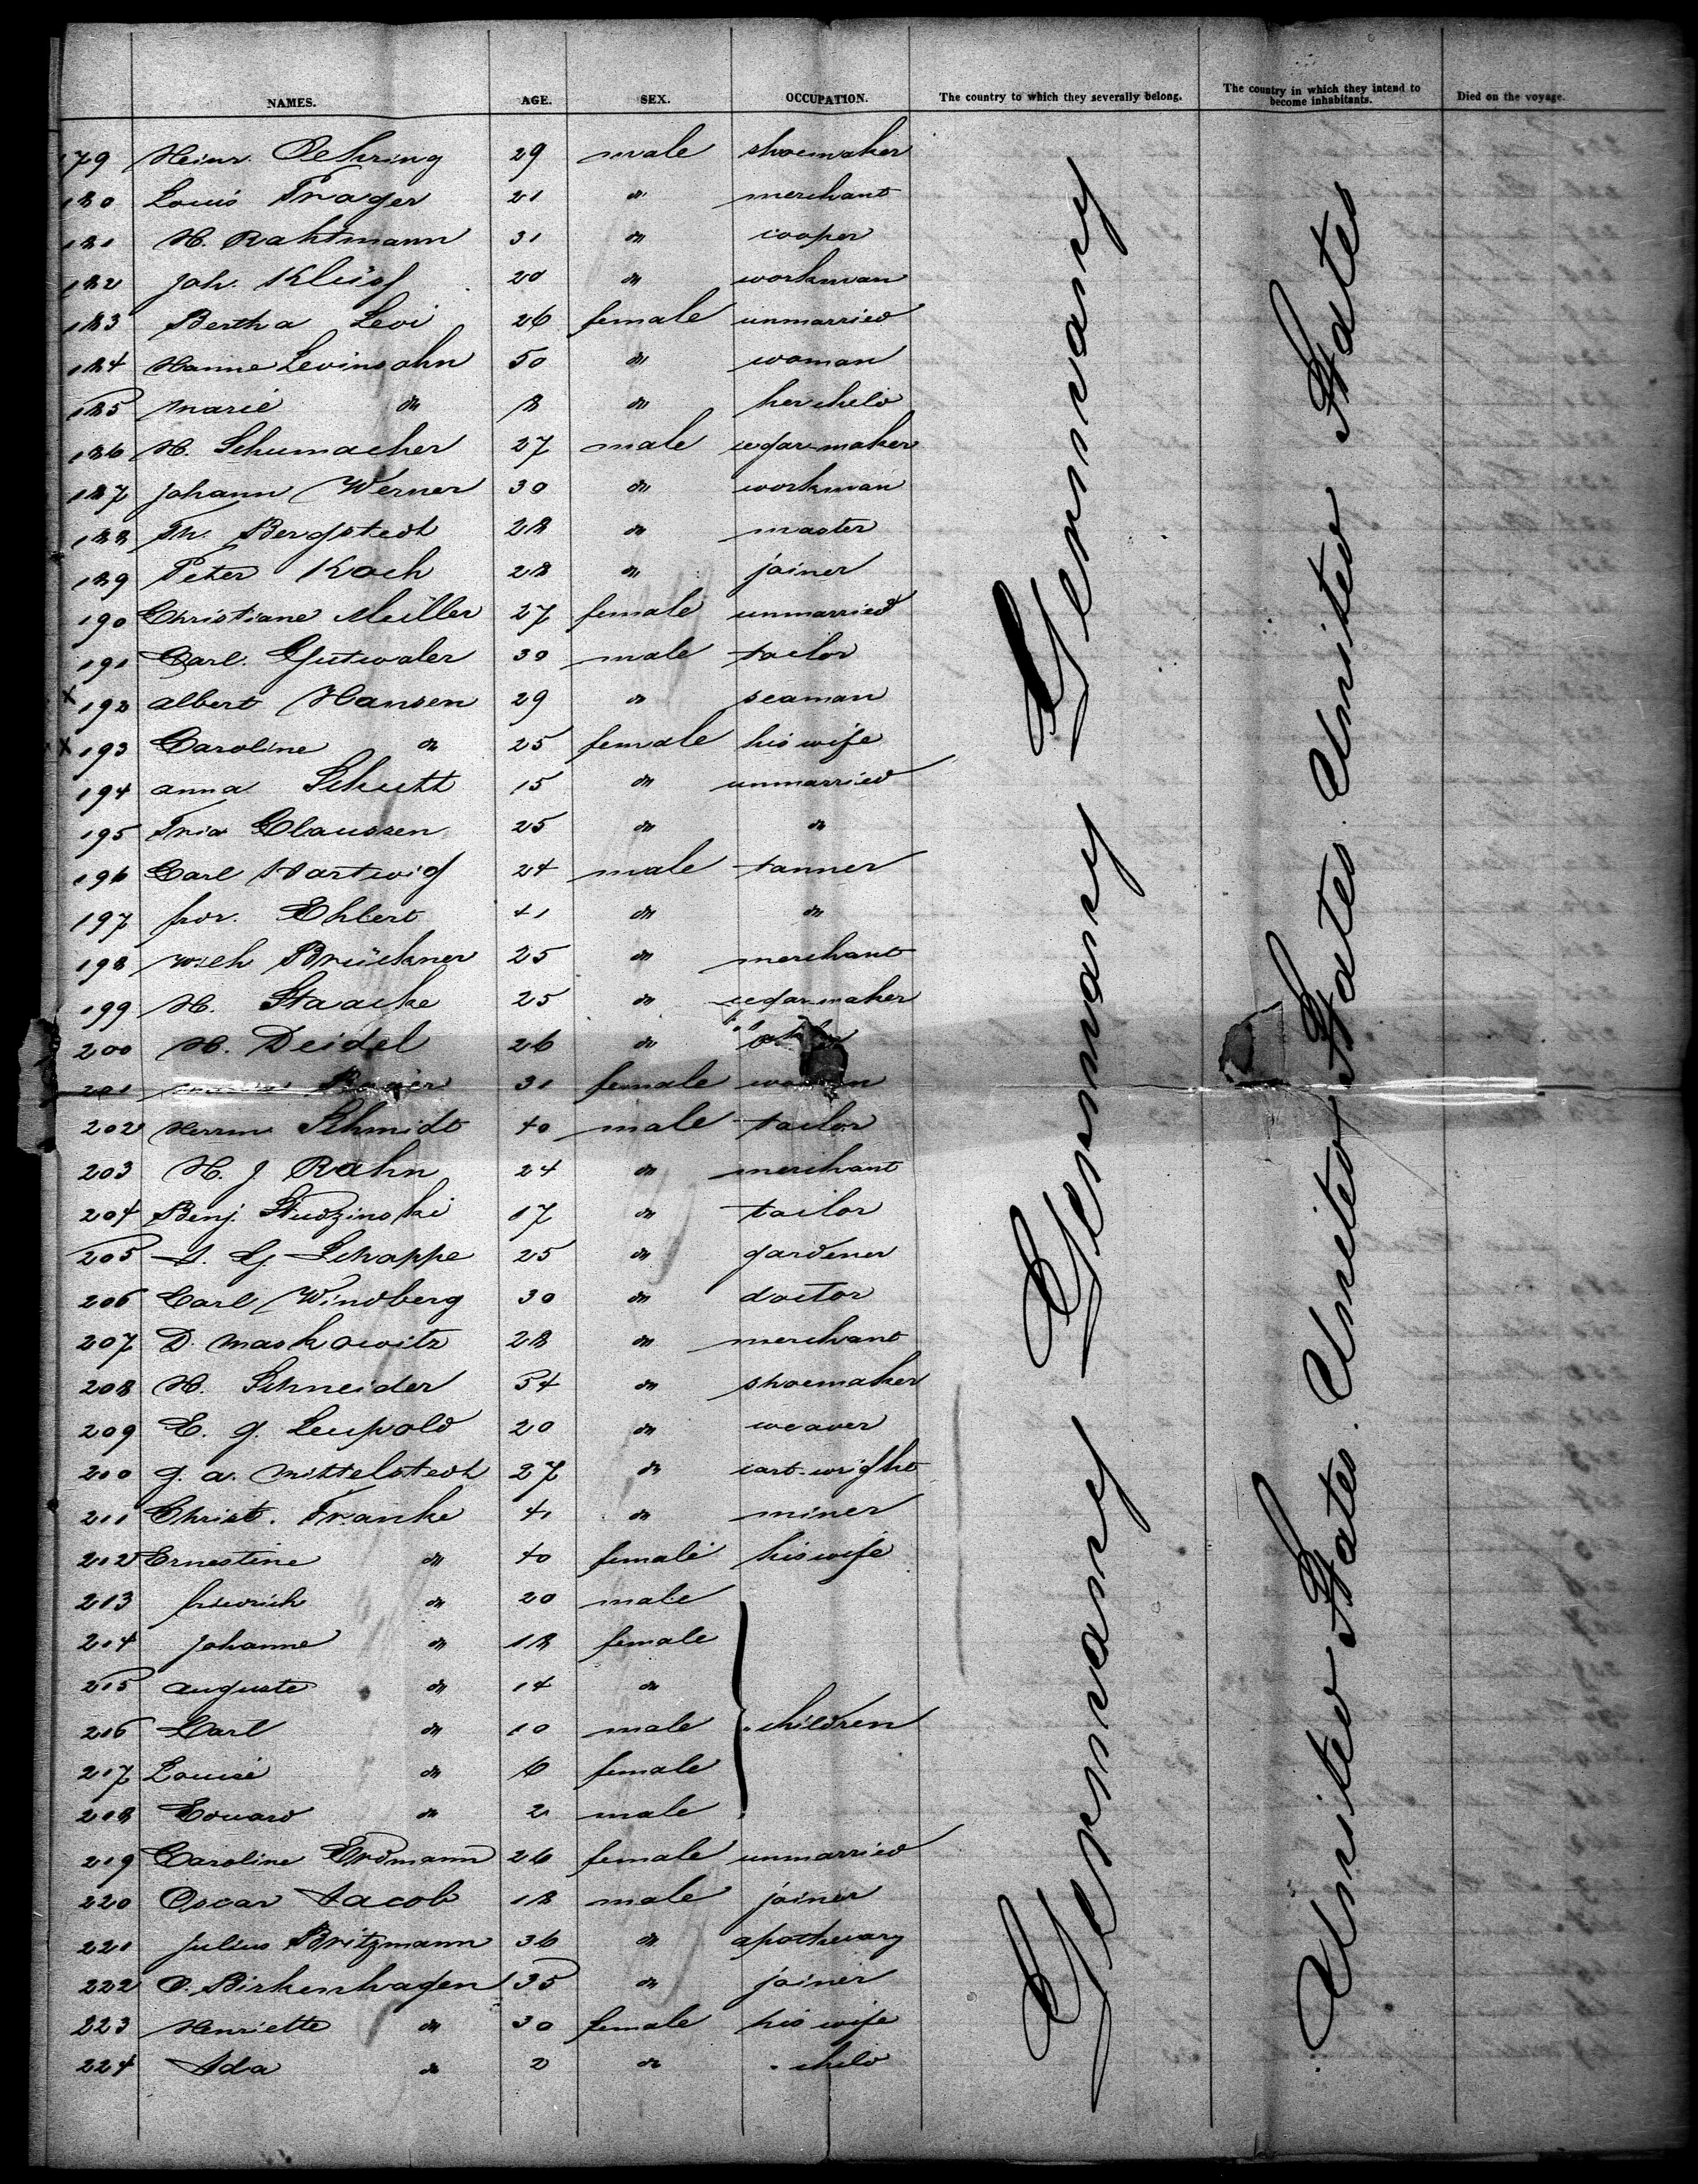 NAMES. AGE. SEX. OCCUPATION. The country to which they severally belong. The country in which they intend to become inhabitants. Died on the voyage.
179 Heinr. Oehring 29 male shoemaker
180 Louis Trager 21 do merchant
181 H. Rahtmann 31 do cooper
182 Joh. 20 do workman
183 Bertha Levi 26 female unmarried
184 Hanne Levinsohn 50 do woman
185 Marie do 8 do her child
186 H. Schumacher 27 male cegar-maker
187 Johann Werner 30 do workman
188 Th. Bergstedt 28 do master
189 Peter Koch 28 do joiner
190 Christiane Müller 27 female unmarried
191 Carl Gutwaler 30 male tailor
x 192 Albert Hansen 29 do seaman
x 193 Caroline do 25 female his wife
194 Anna Schutt 15 do unmarried
195 Claussen 25 do do
196 Carl Hartwig 24 male tanner
197 Ehlert 41 do do
198 Wilh Brückner 25 do merchant
199 H. Staacke 25 do cegar-maker
200 H. Deidel 26 do
201 31 female woman
202 Herrm Schmidt 40 male tailor
203 H. J. Rahn 24 do merchant
204 Benj. Studzinski 17 do tailor
205 Schoppe 25 do gardener
206 Carl Windberg 30 do doctor
207 D. Maskowitz 28 do merchant
208 H. Schneider 54 do shoemaker
209 E. G. Leupold 20 do weaver
200 G. A. Mittelstedt 27 do cart-wright
211 Christ. Franke 41 do miner
212 Ernestine do 40 female his wife
213 Friedrich do 20 male
214 Johanne do 18 female
215 Auguste do 14 do
216 Carl do 10 male children
217 Louise do 6 female
218 Eduard do 2 male
219 Caroline Erdmann 26 female unmarried
220 Oscar Jacob 18 male joiner
221 Julius Britzmann 36 do apothecary
222 O. Birkenhagen 35 do joiner
223 Henriette do 30 female his wife
224 Ida do 2 do child
Germany Germany Germany Germany
United States United States United States